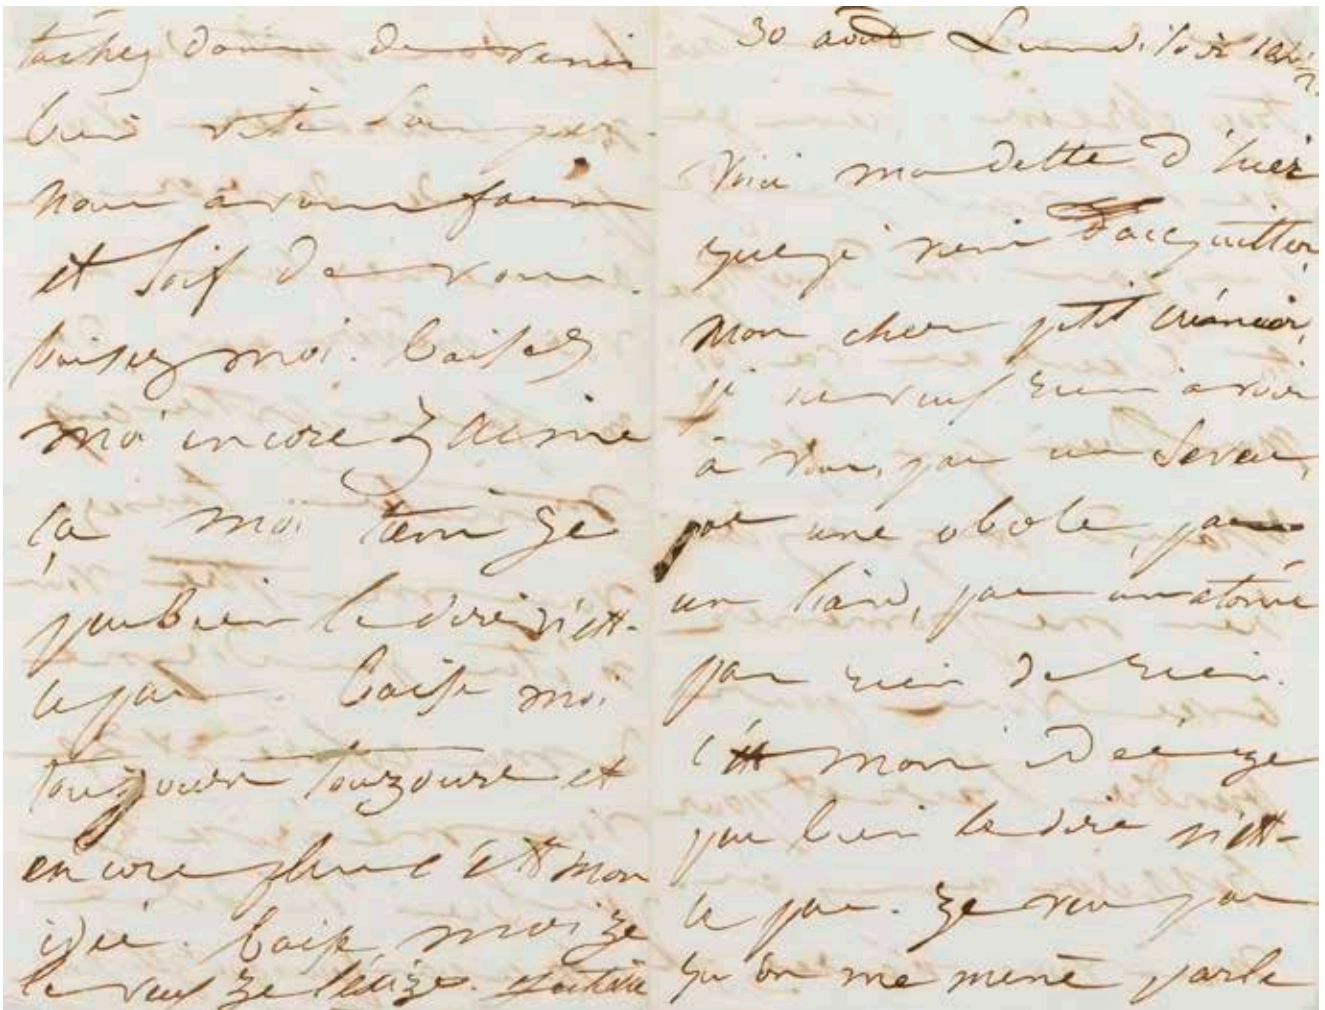 tachez donc de venir
bien vite
nous avons faim
et soif de vous.
baisez moi. baisez
moi encore z'aime
ça moi ze
peux bien le dire n'est-
ce pas. baise moi
toujours touzours et
encore plus c'est mon
idée. baise moi ze
le veux ze l'exize. Juliette
30 août Lundi soir
Voici ma dette d'hier
que je viens d'acquitter,
mon cher petit créancier,
je ne veux rien avoir
à vous, pas un
pas une obole, pas
un liard, pas un atôme
pas rien de rien.
c'est mon idée ze
peux bien le dire n'est-
ce pas. Ze veux pas
qu'on me mene parle